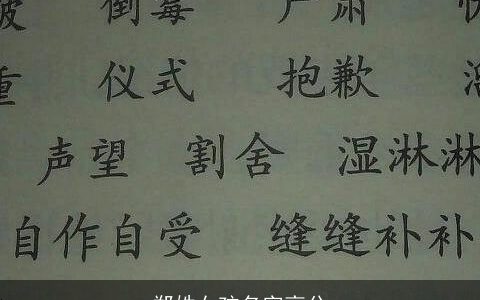 倒霉 严肃
重 仪式 抱歉
声望 割舍 湿淋淋
自作自受 缝缝补补